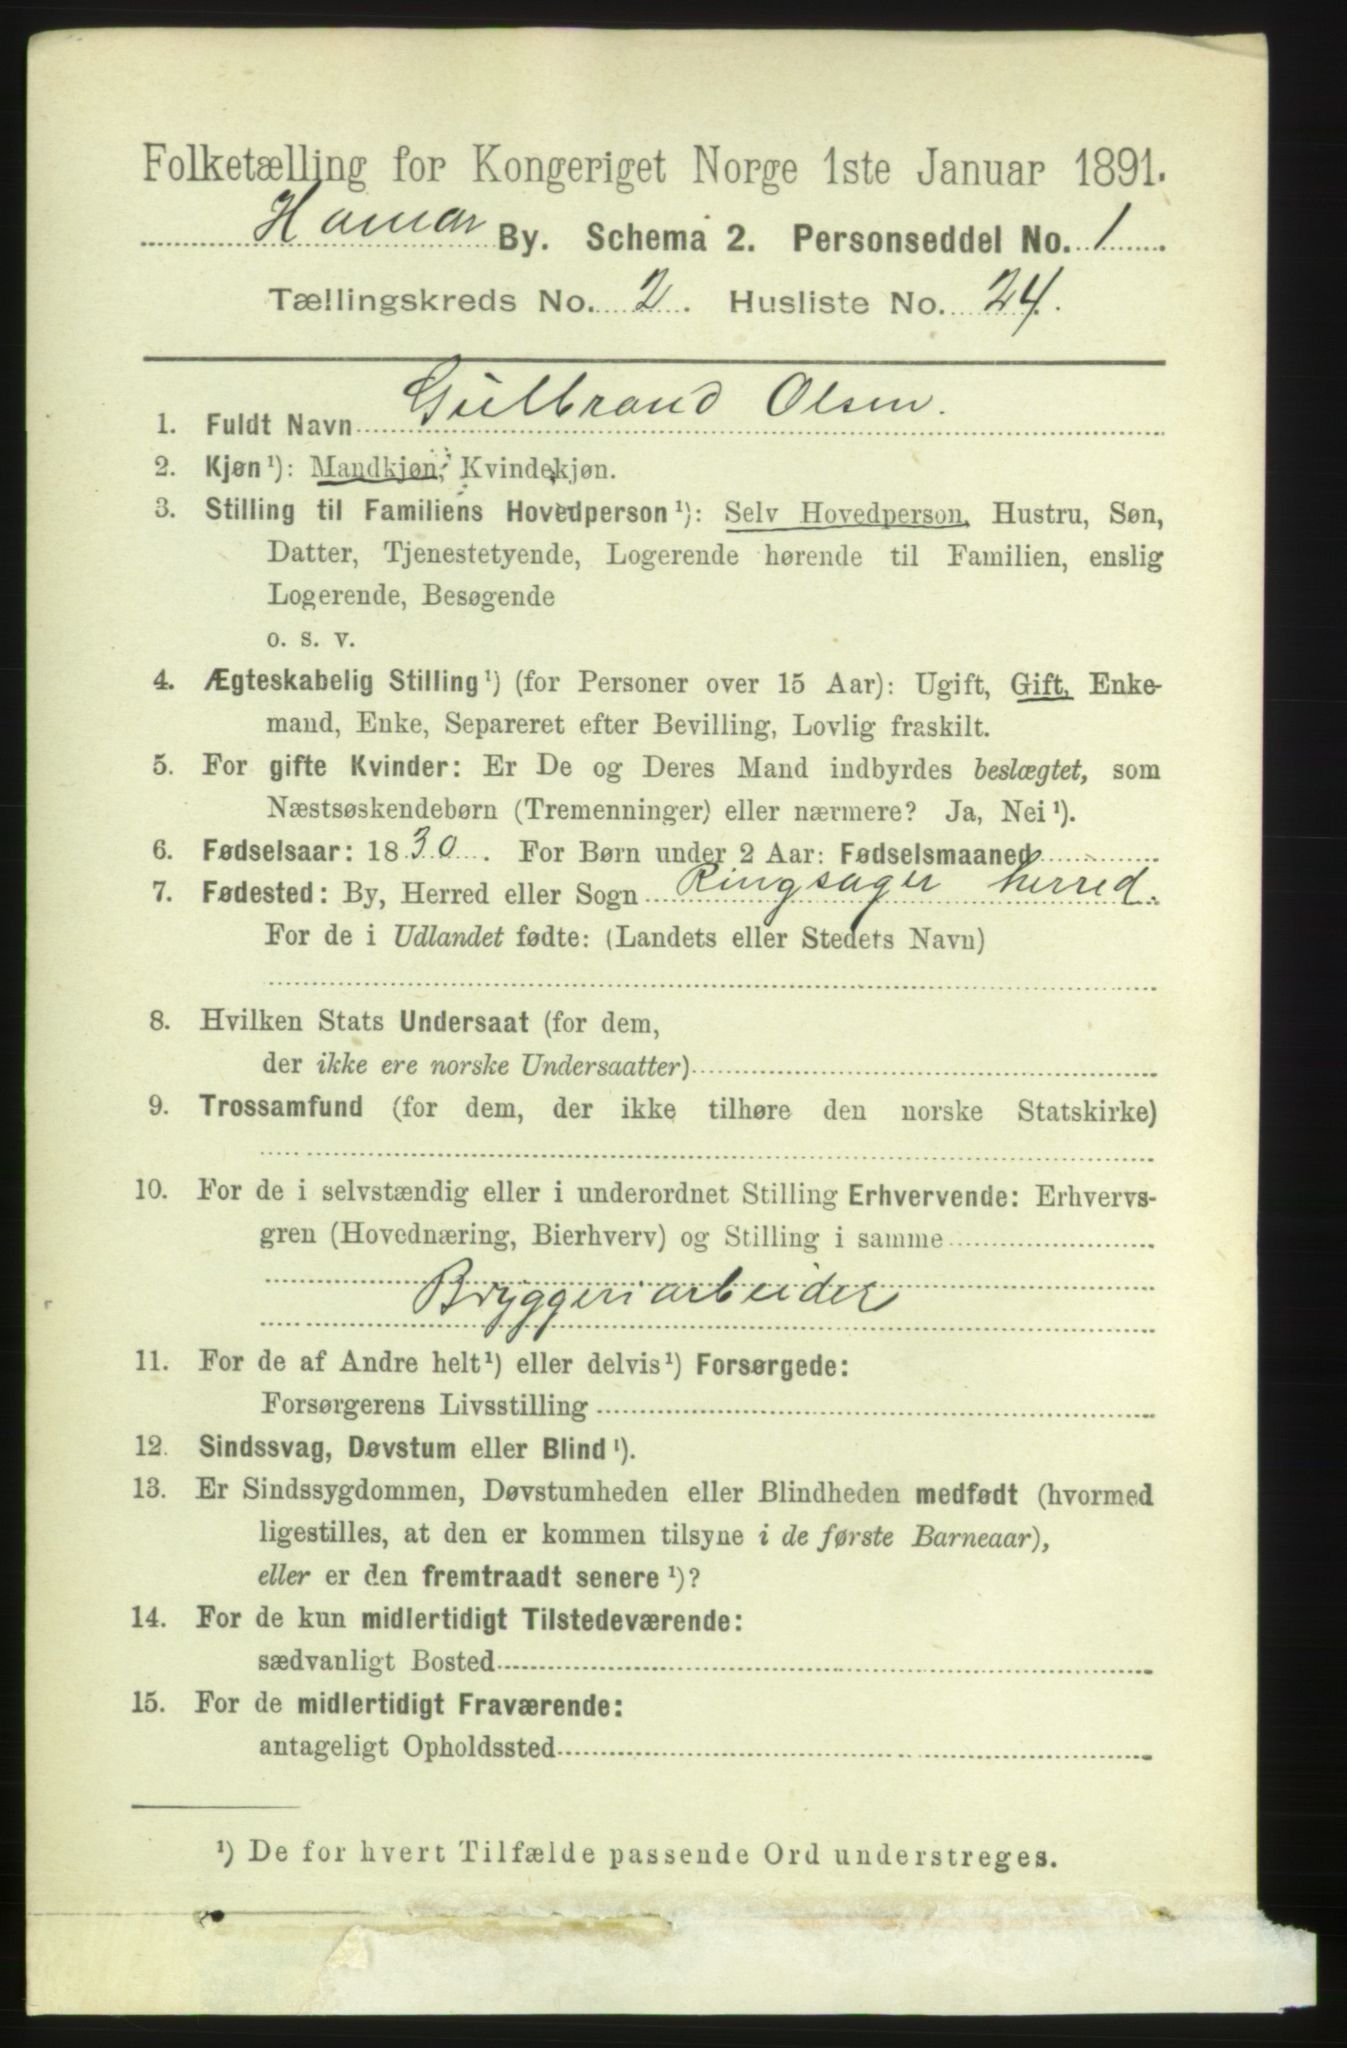 Folketælling for Kongeriget Norge 1ste Januar 1891.
Hamar By. Schema 2. Personseddel No. 1
Tællingskreds No. 2. Husliste No. 24.
1. Fuldt Navn Gulbrand Olsen.
2. Kjøn¹): Mandkjøn, Kvindekjøn.
3. Stilling til Familiens Hovedperson¹): Selv Hovedperson, Hustru, Søn,
Datter, Tjenestetyende, Logerende hørende til Familien, enslig
Logerende, Besøgende
o. s. v.
4. Ægteskabelig Stilling¹) (for Personer over 15 Aar): Ugift, Gift, Enke-
mand, Enke, Separeret efter Bevilling, Lovlig fraskilt.
5. For gifte Kvinder: Er De og Deres Mand indbyrdes beslægtet, som
Næstsøskendebørn (Tremenninger) eller nærmere? Ja, Nei¹).
6. Fødselsaar: 1830. For Børn under 2 Aar: Fødselsmaaned
7. Fødested: By, Herred eller Sogn Ringsager herred.
For de i Udlandet fødte: (Landets eller Stedets Navn)
8. Hvilken Stats Undersaat (for dem,
der ikke ere norske Undersaatter)
9. Trossamfund (for dem, der ikke tilhøre den norske Statskirke)
10. For de i selvstændig eller i underordnet Stilling Erhvervende: Erhvervs-
gren (Hovednæring, Bierhverv) og Stilling i samme
Bryggeriarbeider
11. For de af Andre helt¹) eller delvis¹) Forsørgede:
Forsørgerens Livsstilling
12. Sindssvag, Døvstum eller Blind¹).
13. Er Sindssygdommen, Døvstumheden eller Blindheden medfødt (hvormed
ligestilles, at den er kommen tilsyne i de første Barneaar),
eller er den fremtraadt senere¹)?
14. For de kun midlertidigt Tilstedeværende:
sædvanligt Bosted
15. For de midlertidigt Fraværende:
antageligt Opholdssted
¹) De for hvert Tilfælde passende Ord understreges.